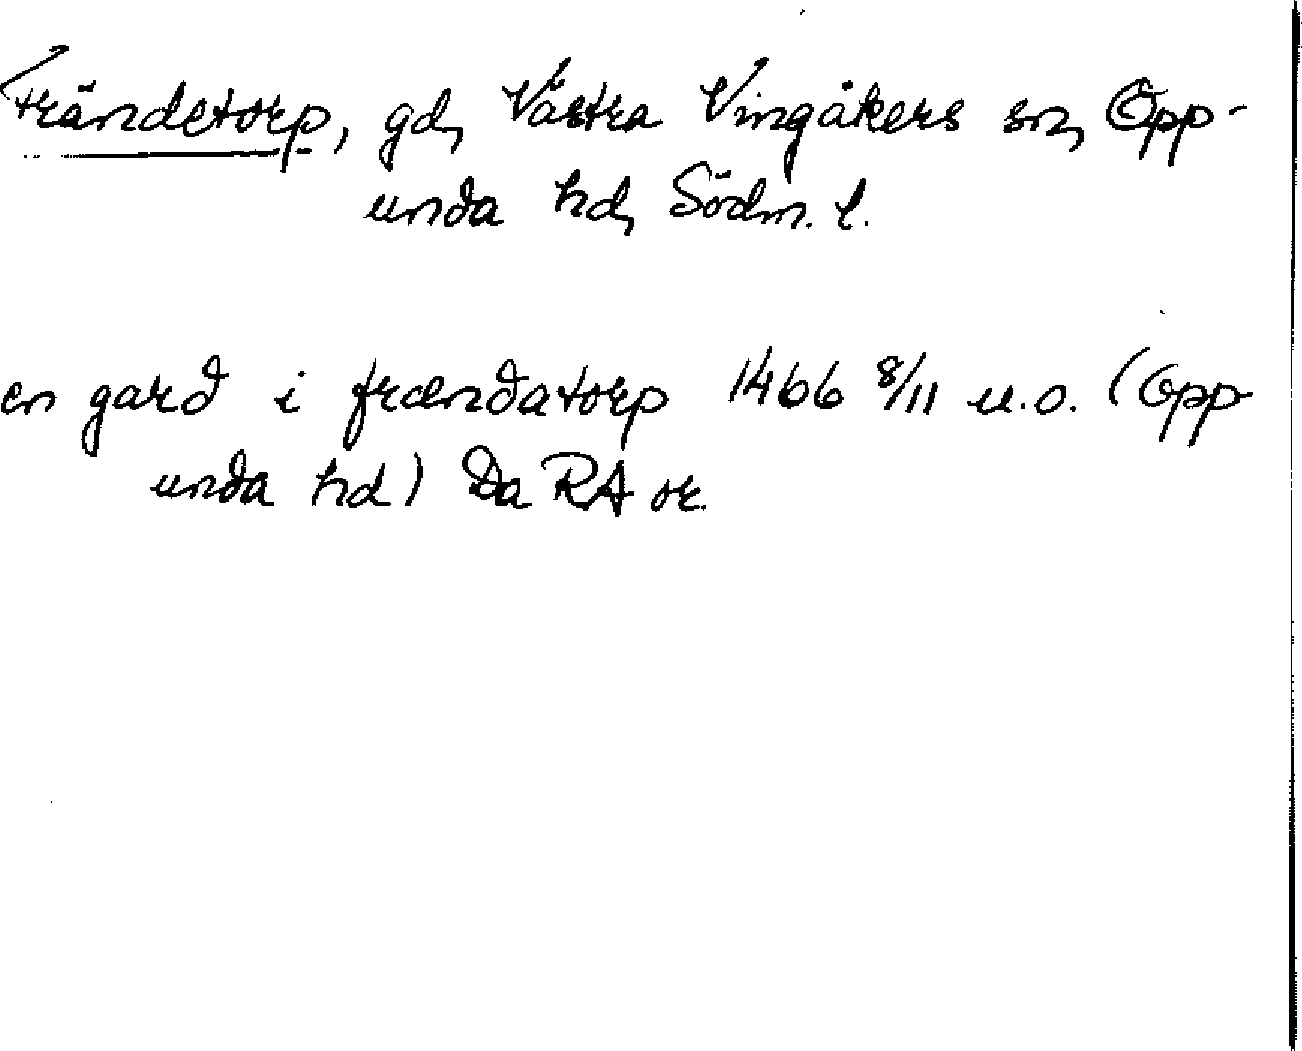 Frändetorp, gd, Västra Vingåkers sn, Opp-
unda hd, Södm. l.
en gard i frændatorp 1466 8/11 u.o. (Opp
unda hd) Da RA or.